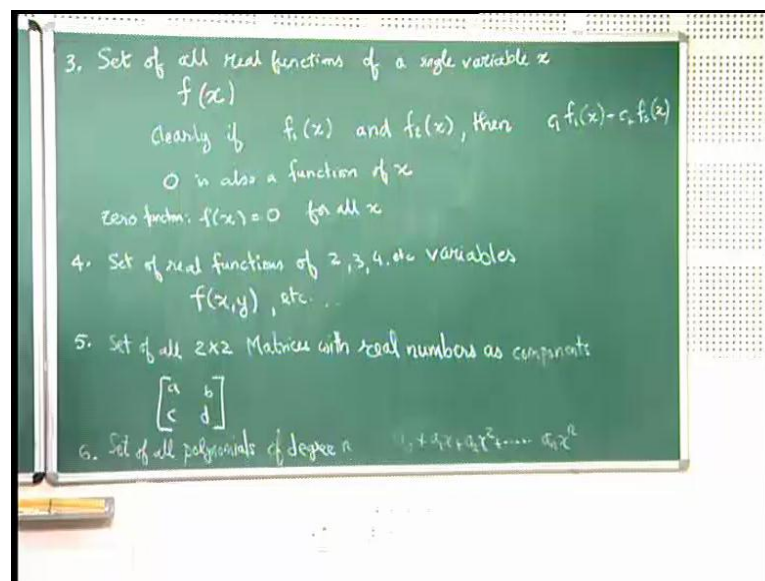 3. Set of all real functions of a single variable x
f(x)
clearly if f₁(x) and f₂(x), then c₁f₁(x)-c₂f₂(x)
0 is also a function of x
zero function: f(x)=0 for all x
4. Set of real functions of 2,3,4, etc variables
f(x,y), etc...
5. Set of all 2x2 Matrices with real numbers as components
[a b
c d]
6. Set of all polynomials of degree n a₀+a₁x+a₂x²+...... aₙxⁿ